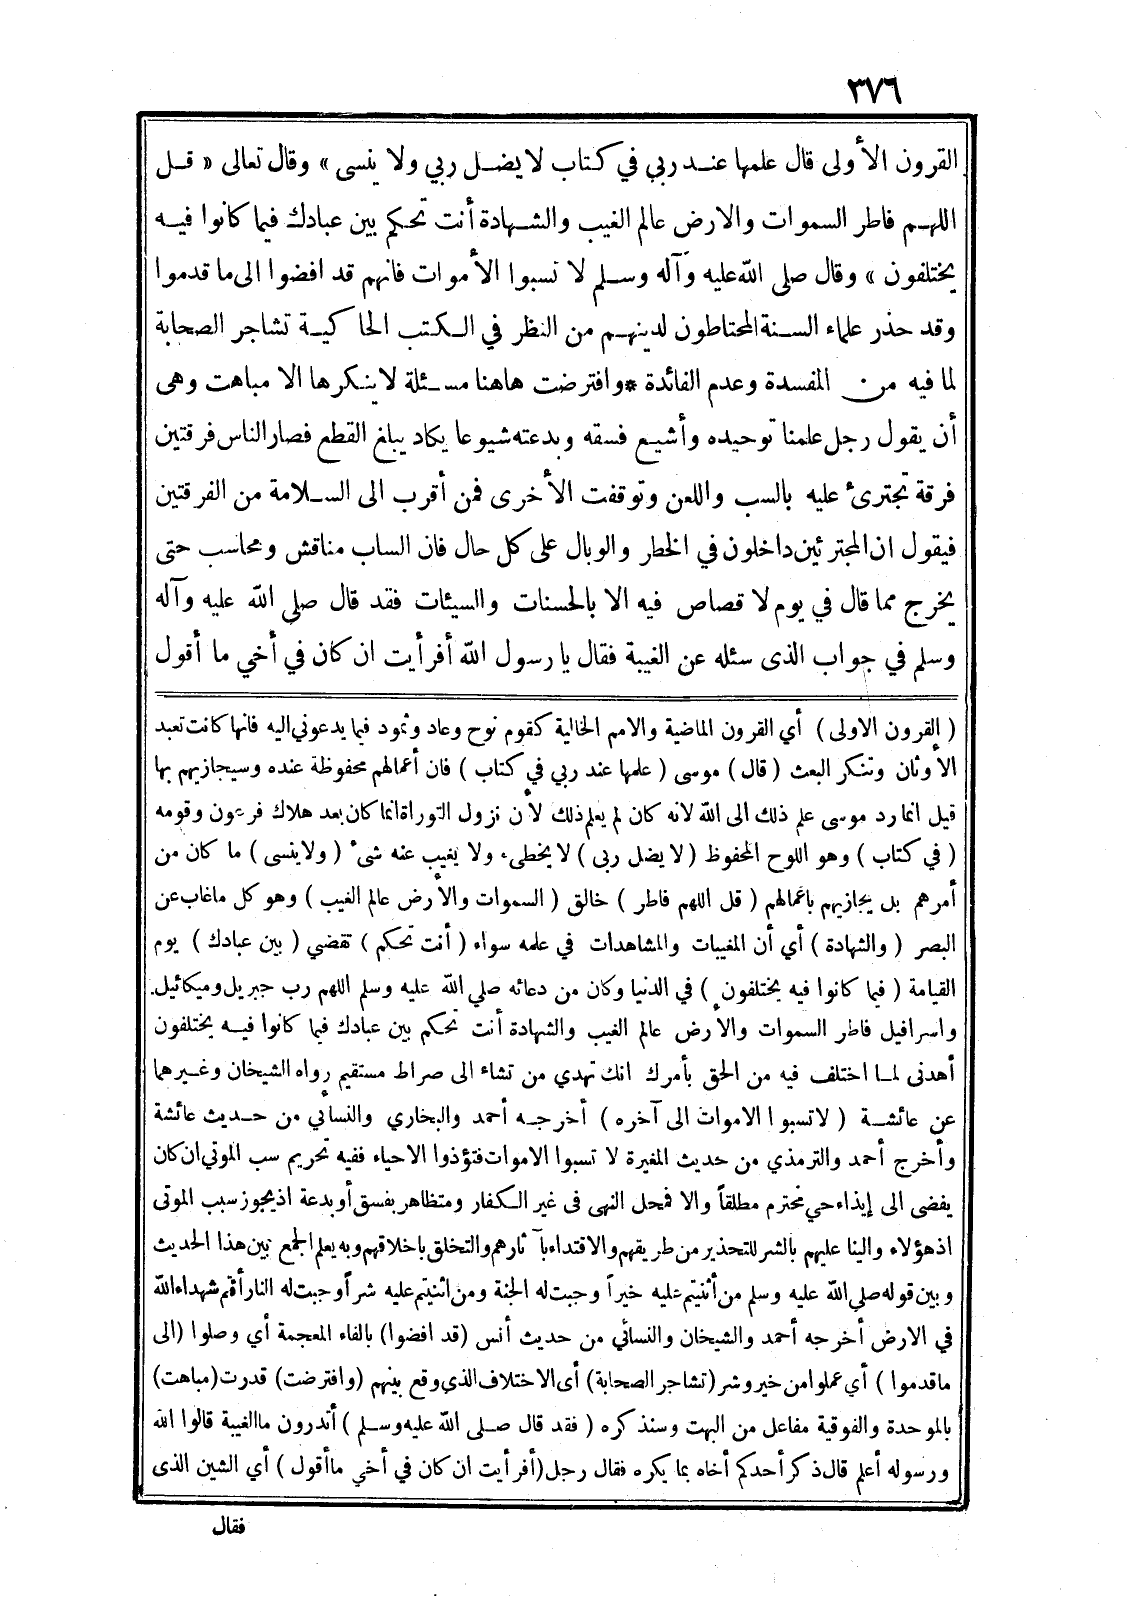 ٣٧٦
القرون الأولى قال علمها عند ربي في كتاب لا يضل ربي ولا ينسى » وقال تعالى « قل
اللهم فاطر السموات والارض عالم الغيب والشهادة أنت تحكم بين عبادك فيما كانوا فيه
يختلفون » وقال صلى الله عليه وآله وسلم لا تسبوا الأموات فانهم قد افضوا الى ما قدموا
وقد حذر علماء السنة المحتاطون لدينهم من النظر في الكتب الحاكية تشاجر الصحابة
لما فيه من المفسدة وعدم الفائدة *وافترضت هاهنا مسئلة لا ينكرها الا مباهت وهى
أن يقول رجل علمنا توحيده وأشيع فسقه وبدعته شيوعا يكاد يبلغ القطع فصار الناس فرقتين
فرقة تجترئ عليه بالسب واللعن وتوقفت الأخرى فمن أقرب الى السلامة من الفرقتين
فيقول ان المجترئين داخلون في الخطر والوبال على كل حال فان الساب مناقش ومحاسب حتى
يخرج مما قال في يوم لا قصاص فيه الا بالحسنات والسيئات فقد قال صلى الله عليه وآله
وسلم في جواب الذى سئله عن الغيبة فقال يا رسول الله أفرأيت ان كان في أخي ما أقول
( القرون الاولى ) أي القرون الماضية والامم الخالية كقوم نوح وعاد وثمود فيما يدعوني اليه فانها كانت تعبد
الأوثان وتنكر البعث ( قال ) موسى ( علمها عند ربي في كتاب ) فان أعمالهم محفوظة عنده وسيجازيهم بها
قيل انما رد موسى علم ذلك الى الله لانه كان لم يعلم ذلك لأن نزول التوراة انما كان بعد هلاك فرعون وقومه
( في كتاب ) وهو اللوح المحفوظ ( لا يضل ربى ) لا يخطىء ولا يغيب عنه شىء ( ولا ينسى ) ما كان من
أمرهم بل يجازيهم باعمالهم ( قل اللهم فاطر ) خالق ( السموات والأرض عالم الغيب ) وهو كل ما غاب عن
البصر ( والشهادة ) أي أن المغيبات والمشاهدات في علمه سواء ( أنت تحكم ) تقضي ( بين عبادك ) يوم
القيامة ( فيما كانوا فيه يختلفون ) في الدنيا وكان من دعائه صلي الله عليه وسلم اللهم رب جبريل وميكائيل
واسرافيل فاطر السموات والأرض عالم الغيب والشهادة أنت تحكم بين عبادك فيما كانوا فيه يختلفون
أهدنى لما اختلف فيه من الحق بأمرك انك تهدي من تشاء الى صراط مستقيم رواه الشيخان وغيرهما
عن عائشة ( لا تسبوا الاموات الى آخره ) أخرجه أحمد والبخاري والنسائي من حديث عائشة
وأخرج أحمد والترمذي من حديث المغيرة لا تسبوا الاموات فتؤذوا الاحياء ففيه تحريم سب الموتي ان كان
يفضى الى إيذاء حي محترم مطلقاً والا فمحل النهى فى غير الكفار ومتظاهر بفسق أو بدعة اذ يجوز سبب الموتى
اذ هؤلاء والينا عليهم بالشر للتحذير من طريقهم والاقتداء بآثارهم والتخلق باخلاقهم وبه يعلم الجمع بين هذا الحديث
وبين قوله صلي الله عليه وسلم من أثنيتم عليه خيراً وجبت له الجنة ومن اثنيتم عليه شراً وجبت له النار أنتم شهداء الله
في الارض أخرجه أحمد والشيخان والنسائي من حديث أنس (قد افضوا) بالفاء المعجمة أي وصلوا (الى
ما قدموا ) أي عملوا من خير وشر (تشاجر الصحابة) أى الاختلاف الذي وقع بينهم (وافترضت) قدرت (مباهت)
بالموحدة والفوقية مفاعل من البهت وسنذكره ( فقد قال صلى الله عليه وسلم ) أتدرون ما الغيبة قالوا الله
ورسوله أعلم قال ذكر أحدكم أخاه بما يكره فقال رجل (أفرأيت ان كان في أخي ما أقول ) أي الشين الذى
فقال